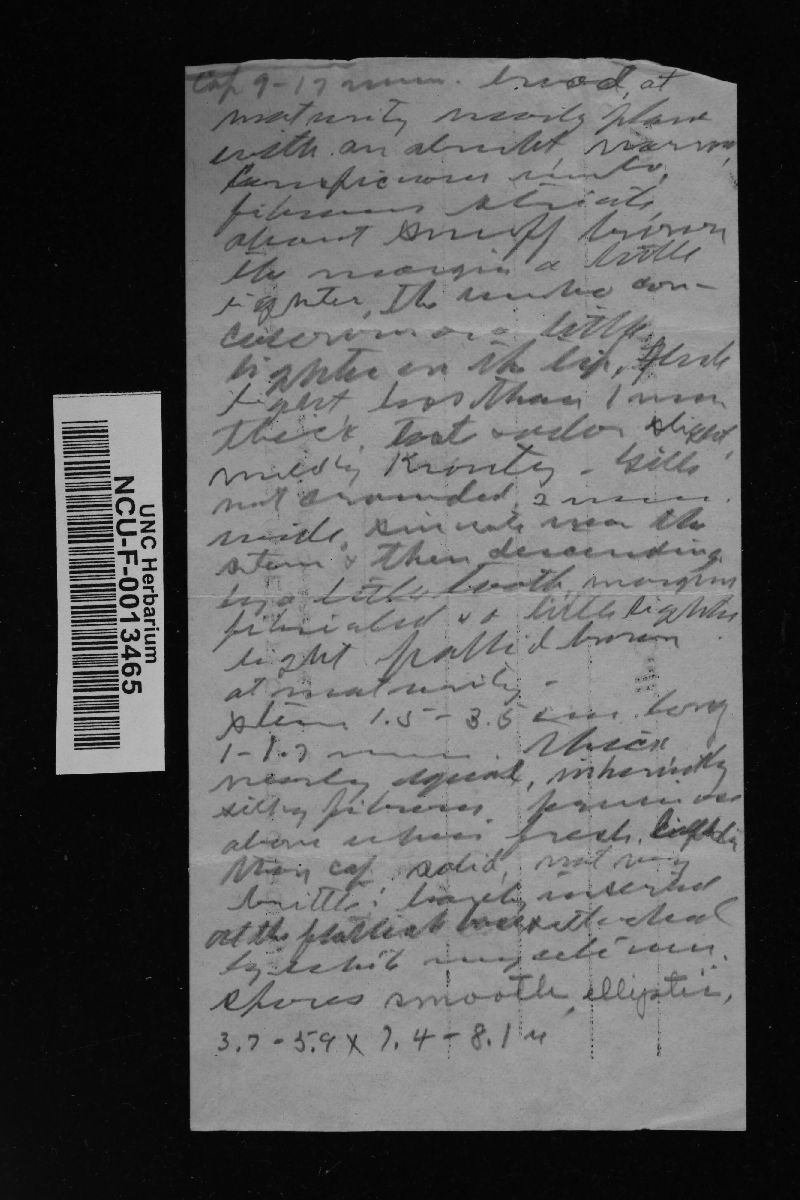 Cap 9-17 mm. broad, at
maturity nearly plane
with an abrupt narrow,
conspicuous umbo,
fibrous striate,
about snuff brown
the margin a little
lighter, the umbo con-
colorous or a little
lighter on the tip, flesh
light less than 1 mm
thick, taste & odor slight,
mildly Krouty - Gills
not crowded, 2 mm.
wide, sinuate near the
stem & then descending
by a little tooth, margin
fibriated & a little lighter
light pallid brown
at maturity -
Stem 1.5 - 3.5 cm. long
1-1.7 mm. thick
nearly equal,
silky fibrous, pruinose
above when fresh, lighter
than cap, solid, not very
brittle; barely inserted
at the base & attached
by white mycelium.
Spores smooth, elliptic,
3.7 - 5.9 x 7.4 - 8.1 u
UNC Herbarium
NCU-F-0013465